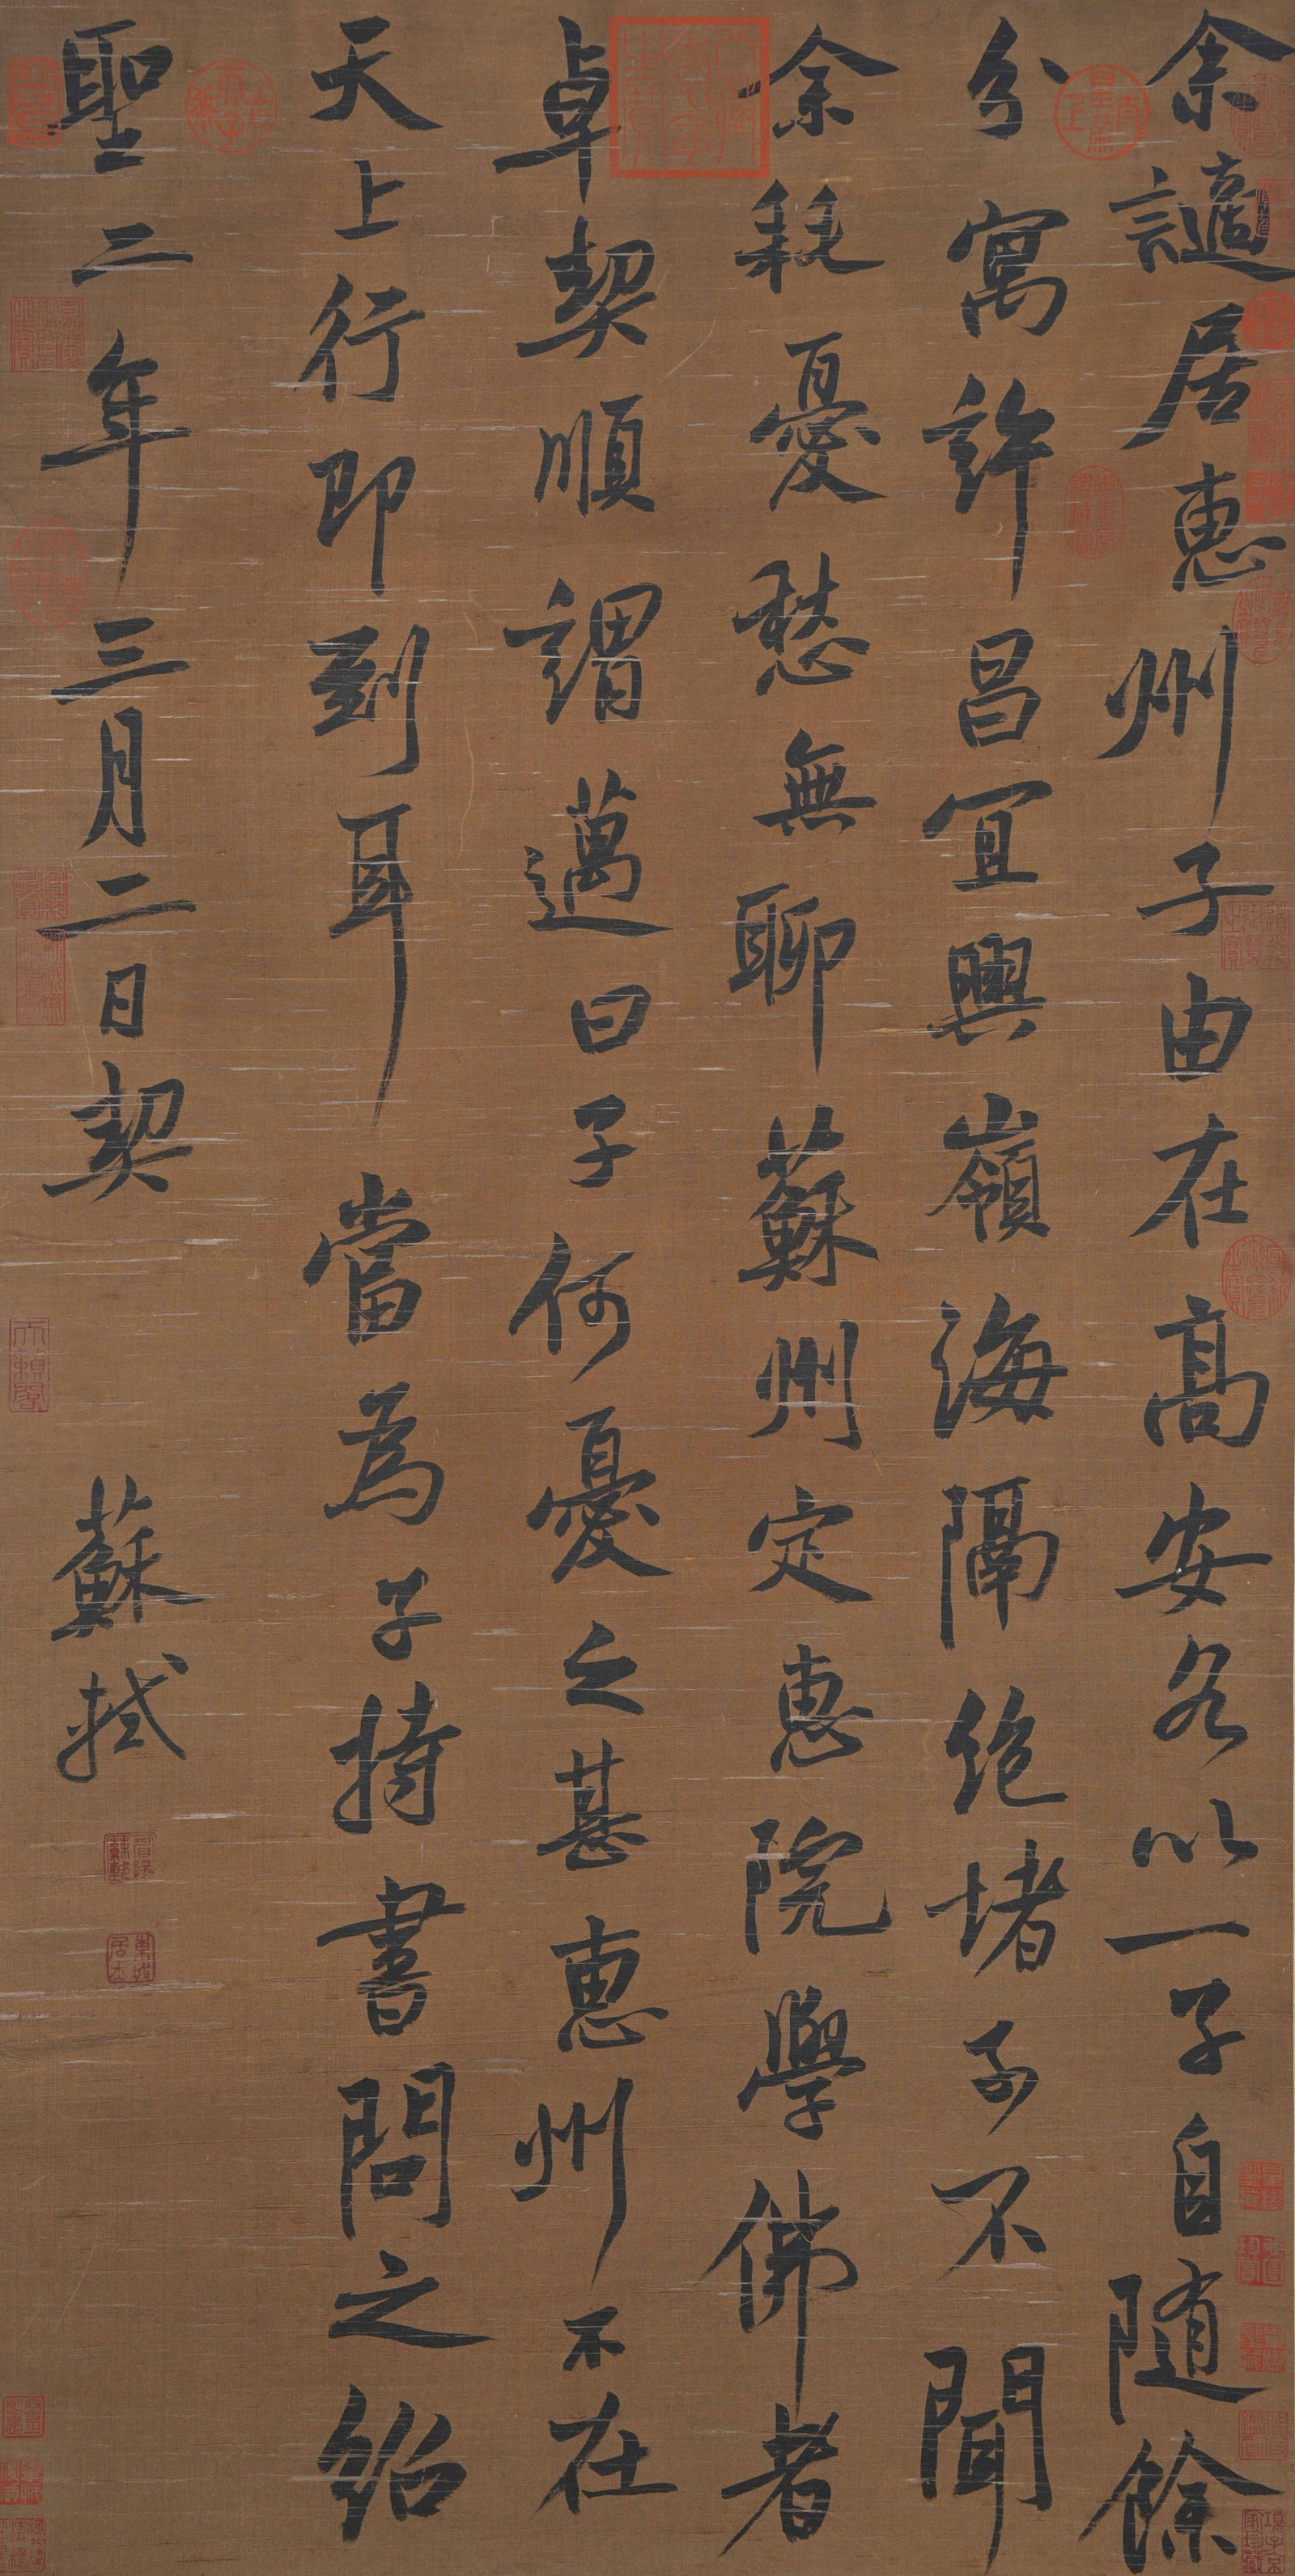 余謫居惠州子由在高安各以一子自随餘
分寓許昌宜興嶺海隔絶堵子不聞
余耗憂愁無聊蘇州定惠院學佛者
卓契順謂邁曰子何憂之甚惠州不在
天上行即到耳當為子持書問之紹
聖二年三月二日契
蘇軾
東坡居士